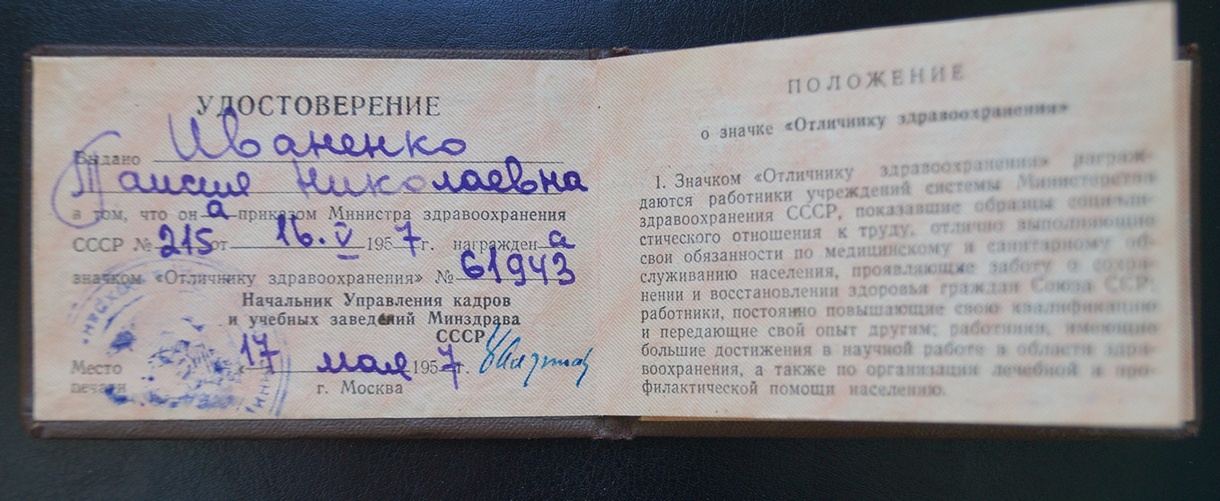 УДОСТОВЕРЕНИЕ
Выдано Иваненко
Таисия Николаевна
в том, что она приказом Министра здравоохранения
СССР № 215 от 16. V 1957 г. награждена
значком «Отличнику здравоохранения» № 61943
Начальник Управления кадров
и учебных заведений Минздрава
СССР
Место
печати
«17 мая 1957 г.
г. Москва
ПОЛОЖЕНИЕ
о значке «Отличнику здравоохранения»
1. Значком «Отличнику здравоохранения» награж-
даются работники учреждений системы Министерства
здравоохранения СССР, показавшие образцы социали-
стического отношения к труду, отлично выполняющие
свои обязанности по медицинскому и санитарному об-
служиванию населения, проявляющие заботу о сохра-
нении и восстановлении здоровья граждан Союза ССР;
работники, постоянно повышающие свою квалификацию
и передающие свой опыт другим; работники, имеющие
большие достижения в научной работе в области здра-
воохранения, а также по организации лечебной и про-
филактической помощи населению.